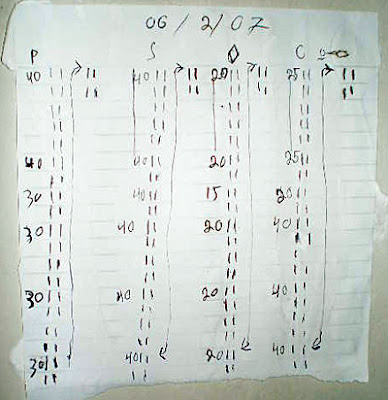 06/2/07
P S ◊ C
40 40 20 25
40 40 20 25
30 40 15 20
30 40 20 40
30 40 20 40
30 40 20 40